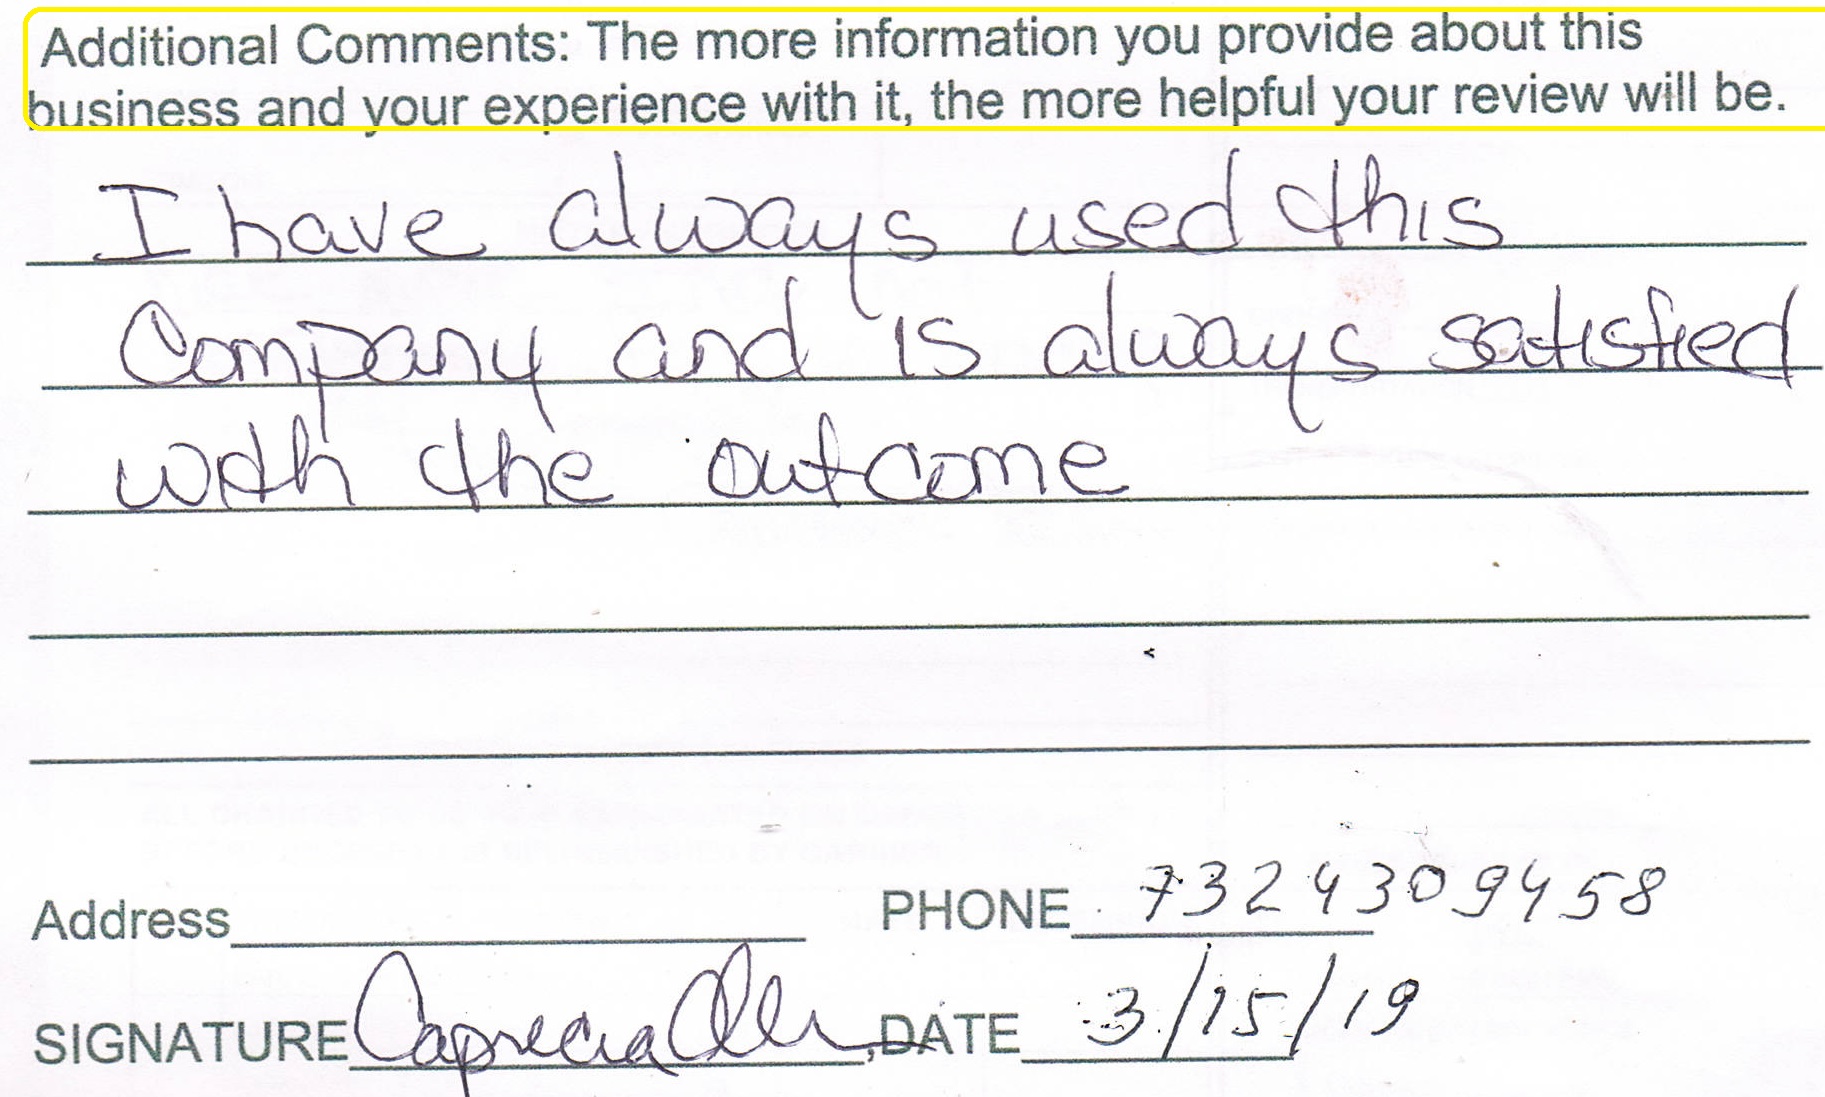 Additional Comments: The more information you provide about this
business and your experience with it, the more helpful your review will be.
I have always used this
Company and is always satisfied
with the outcome
Address PHONE 7324309458
SIGNATURE Caprecia DATE 3/15/19